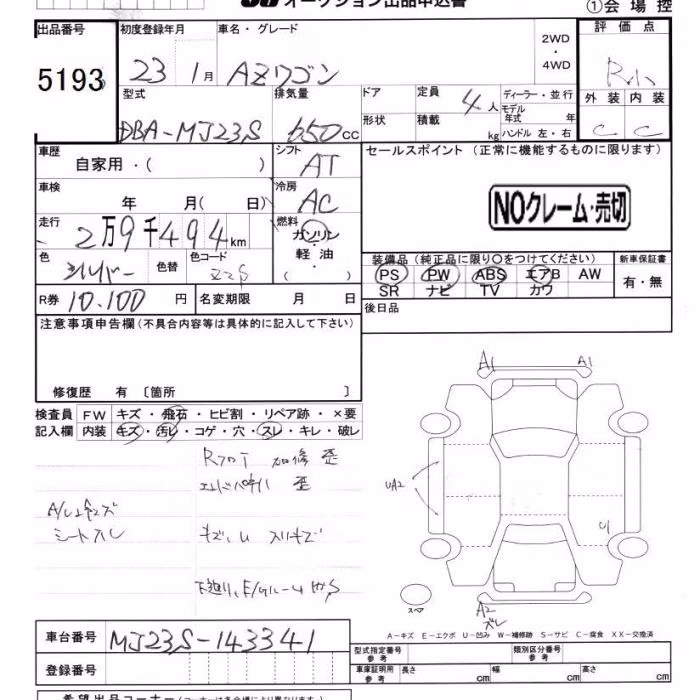 オークション出品申込書
①会場控
出品番号 初度登録年月 車名・グレード 2WD・4WD 評価点
5193 23 1月 AZワゴン R
外装 内装
C C
型式 排気量 ドア 定員 4人 ディーラー・並行
DBA-MJ23S 650cc 形状 積載 kg モデル年式 年 ハンドル 左・右
車歴 自家用・( ) シフト AT セールスポイント (正常に機能するものに限ります)
車検 年 月( 日) 冷房 AC
NOクレーム・売切
走行 2万9千494km 燃料 ガソリン・軽油・( )
色 シルバー 色替 色コード Z2S
装備品 (純正品に限り〇をつけてください) 新車保証書
PS PW ABS エアB AW 有・無
SR ナビ TV カワ
R券 10.100円 名変期限 月 日 後日品
注意事項申告欄 (不具合内容等は具体的に記入して下さい)
修復歴 有 〔箇所 〕
検査員 FW キズ・飛石・ヒビ割・リペア跡・×要
記入欄 内装 キズ・汚レ・コゲ・穴・スレ・キレ・破レ
加修 歪
歪
シートスレ
A1 A1
UA2
U1
スペア
A2
ズレ
A-キズ E-エクボ U-凹み W-補修跡 S-サビ C-腐食 XX-交換済
車台番号 MJ23S-143341 型式指定番号 参考 類別区分番号 参考
登録番号 車庫証明用 参考 長さ cm 幅 cm 高さ cm
希望出品コーナー (コーナーは各会場により異なります)